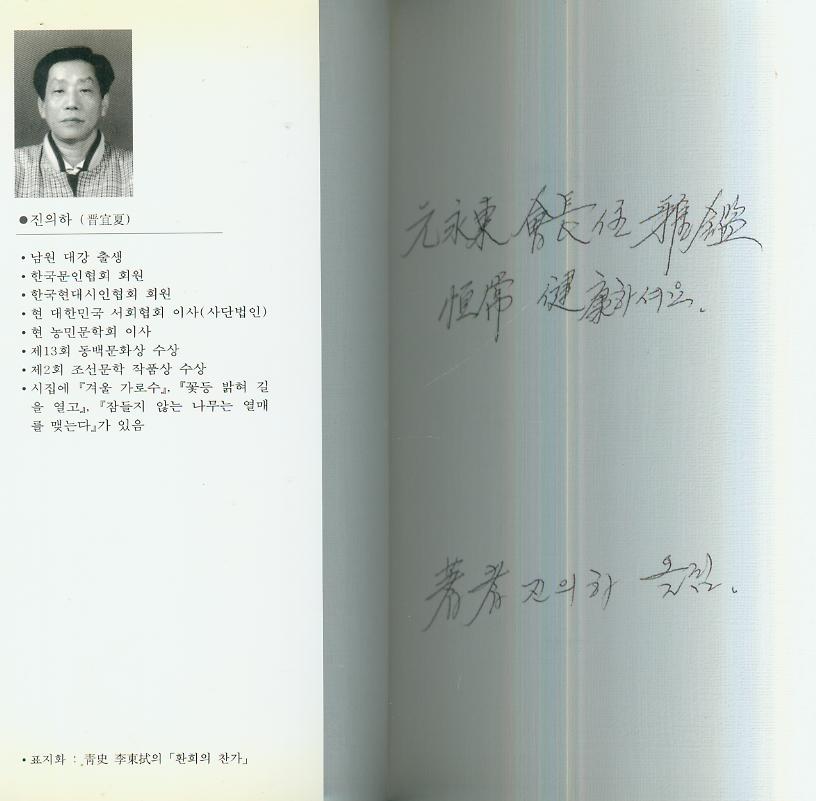 ●진의하 (晋宜夏)
• 남원 대강 출생
• 한국문인협회 회원
• 한국현대시인협회 회원
• 현 대한민국 서회협회 이사(사단법인)
• 현 농민문학회 이사
• 제13회 동백문화상 수상
• 제2회 조선문학 작품상 수상
• 시집에 『겨울 가로수』, 『꽃등 밝혀 길
을 열고』, 『잠들지 않는 나무는 열매
를 맺는다』가 있음
• 표지화 : 靑史 李東拭의 「환희의 찬가」
元永東 會長任 雅鑑
恒常 健康하셔요.
著者 진의하 올림.